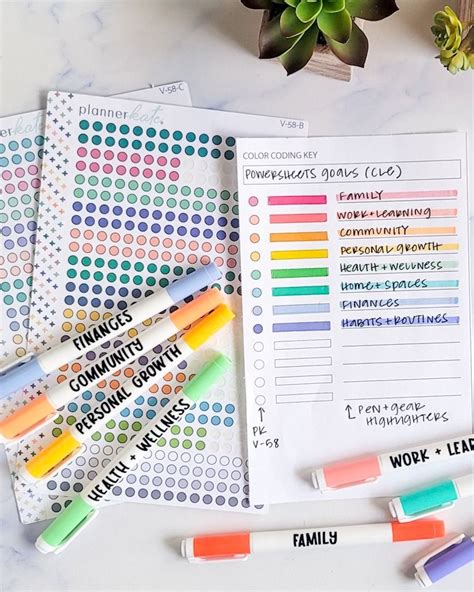 V-58-C
plannerkate
V-58-B
COLOR CODING KEY
POWERSHEETS GOALS (CLE)
FAMILY
WORK + LEARNING
COMMUNITY
PERSONAL GROWTH
HEALTH + WELLNESS
HOME + SPACES
FINANCES
HABITS + ROUTINES
PK
V-58
PEN + GEAR
HIGHLIGHTERS
FINANCES
COMMUNITY
PERSONAL GROWTH
HEALTH + WELLNESS
WORK + LEA
FAMILY